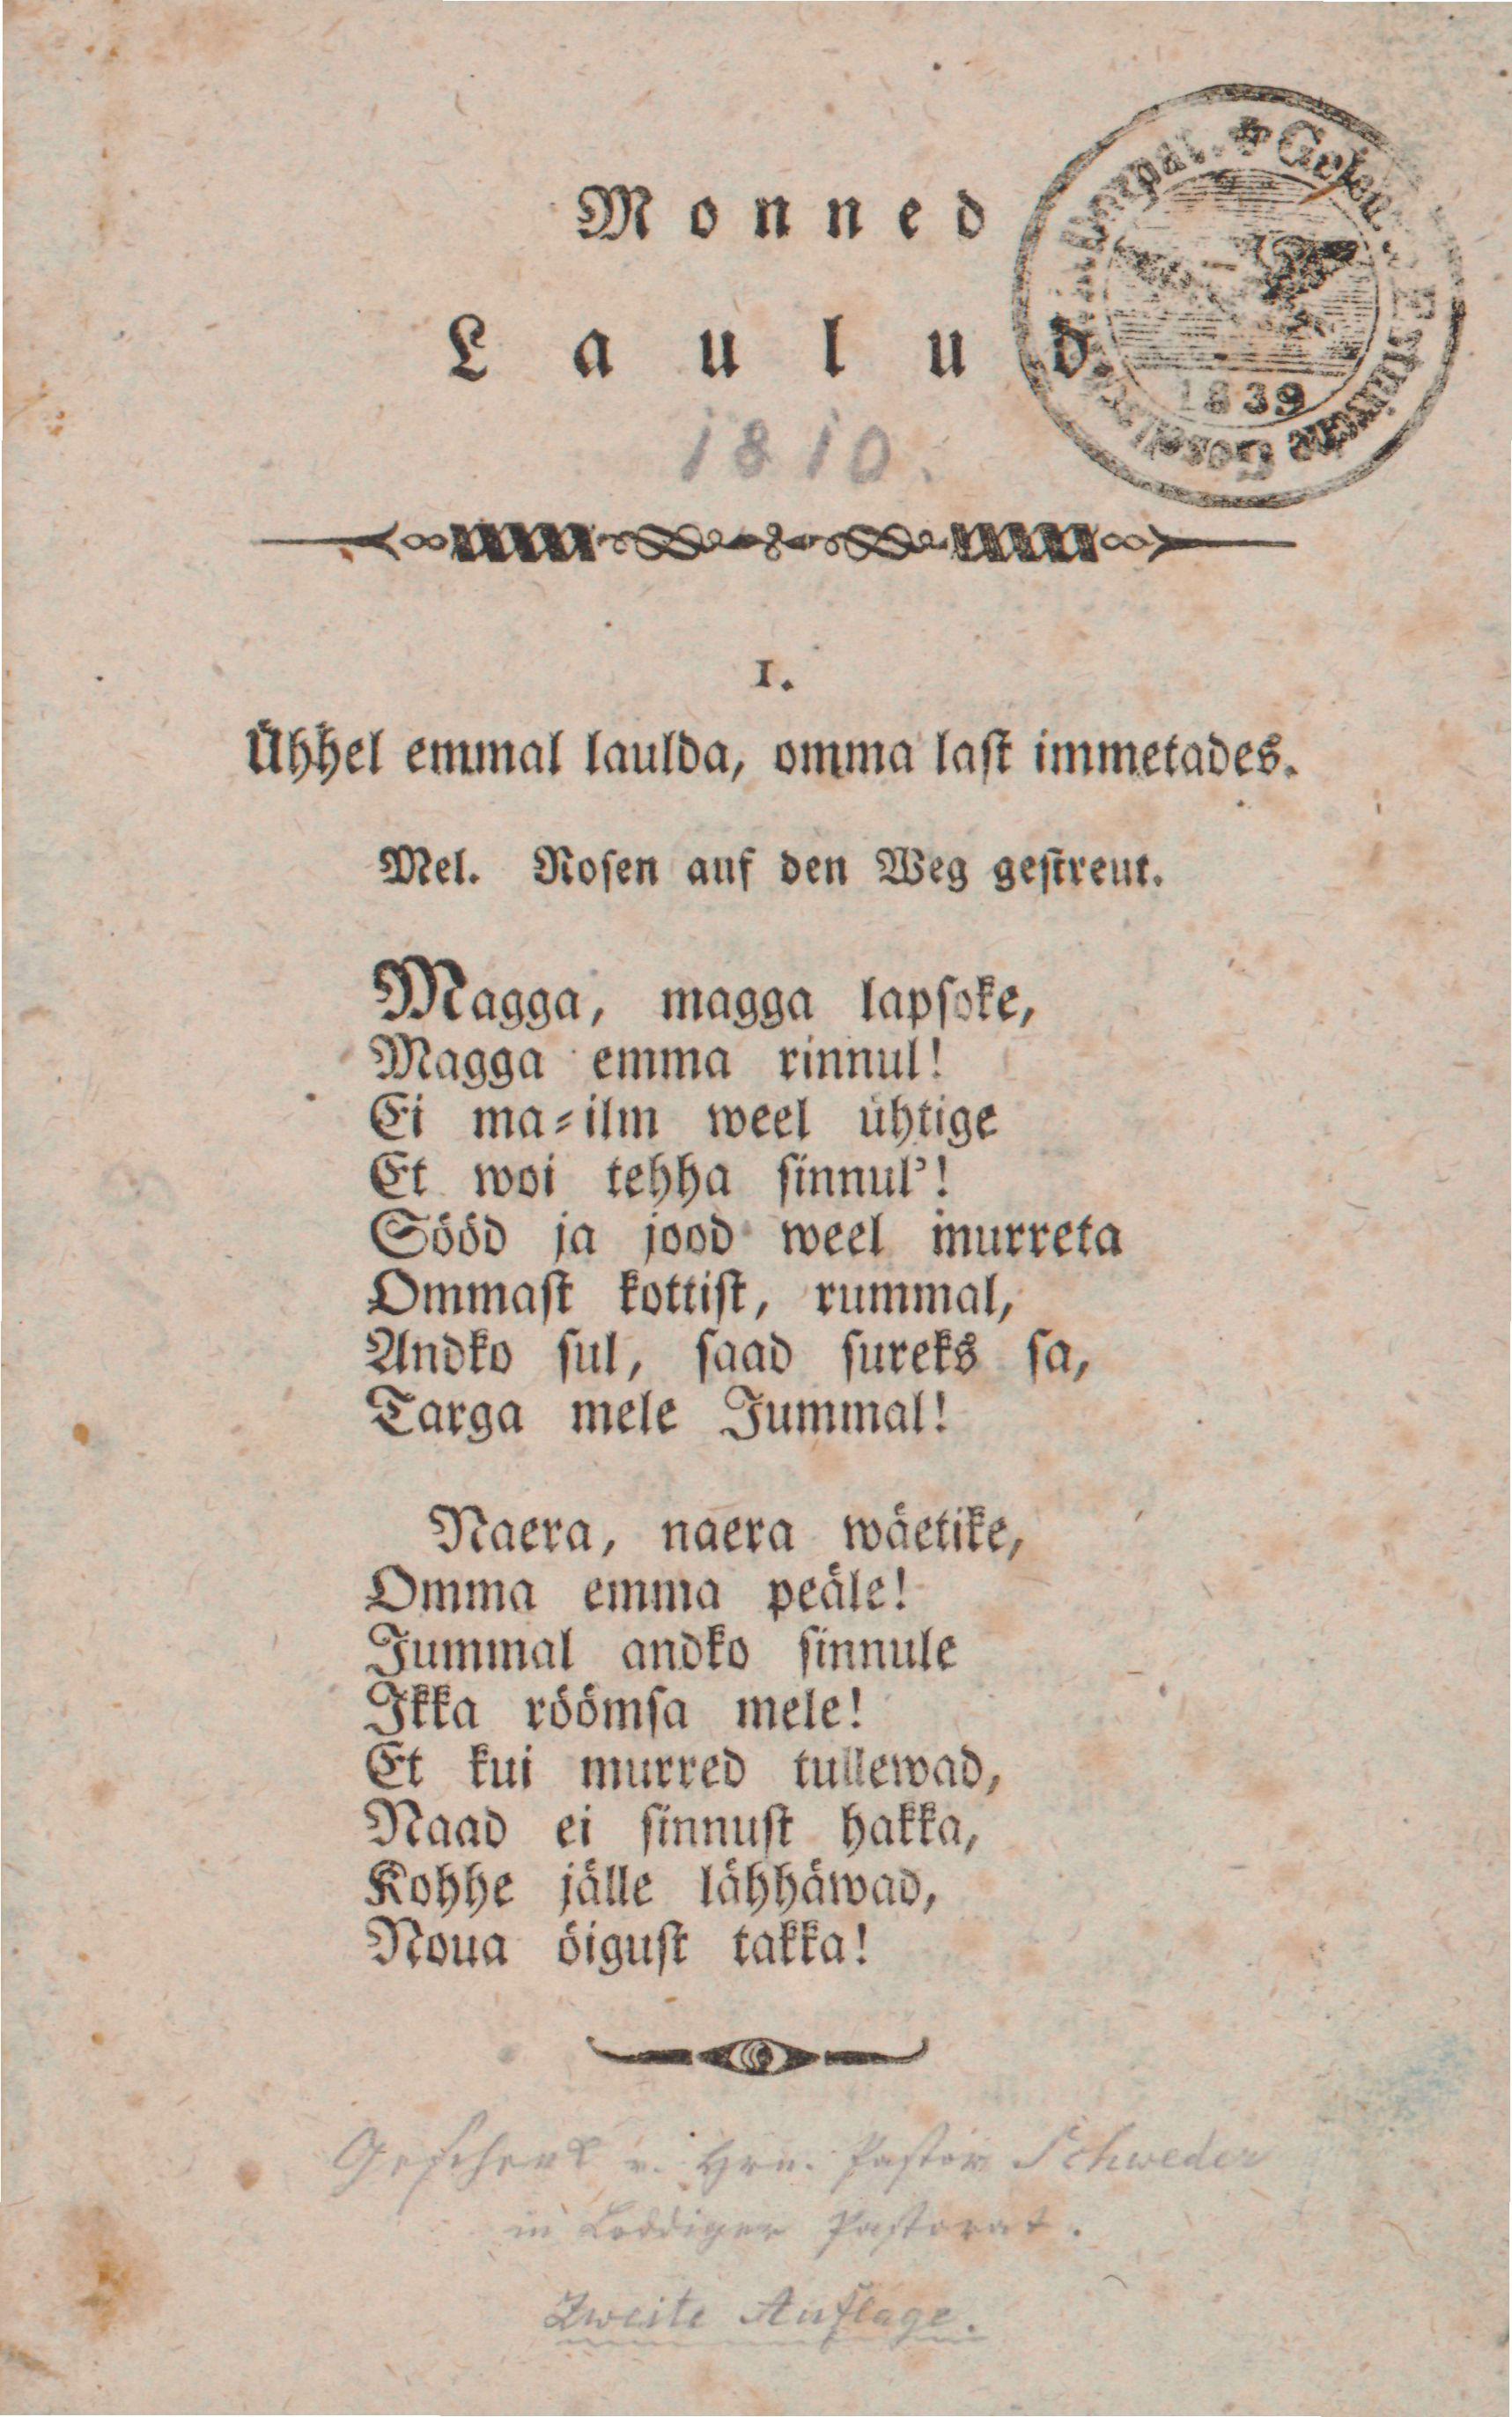 Monned
Laulud.
Gelehrte Estnische Gesellschaft
1839
1810.
1.
Ühhel emmal laulda, omma last immetades.
Mel. Rosen auf den Weg gestreut.
Magga, magga lapsoke,
Magga emma rinnul!
Ei ma-ilm weel ühtige
Et woi tehha sinnul'!
Sööd ja jood weel murreta
Ommast kottist, rummal,
Andko sul, saad sureks sa,
Targa mele Jummal!
Naera, naera wäetike,
Omma emma peäle!
Jummal andko sinnule
Ikka röömsa mele!
Et kui murred tullewad,
Naad ei sinnust hakka,
Kohhe jälle lähhäwad,
Noua öigust takka!
Geschenk v. Hrn. Pastor Schweder
in Loddiger Pastorat.
Zweite Auflage.